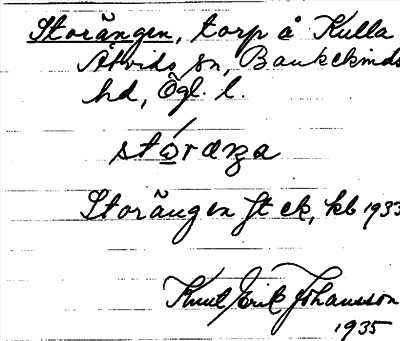 Storängen, torp å Kulla
Åtvids sn, Bankekinds
hd, Ögl. l.
stǿraŋa
Storängen ft ek, kb 1933
Knut Erik Johansson
1935